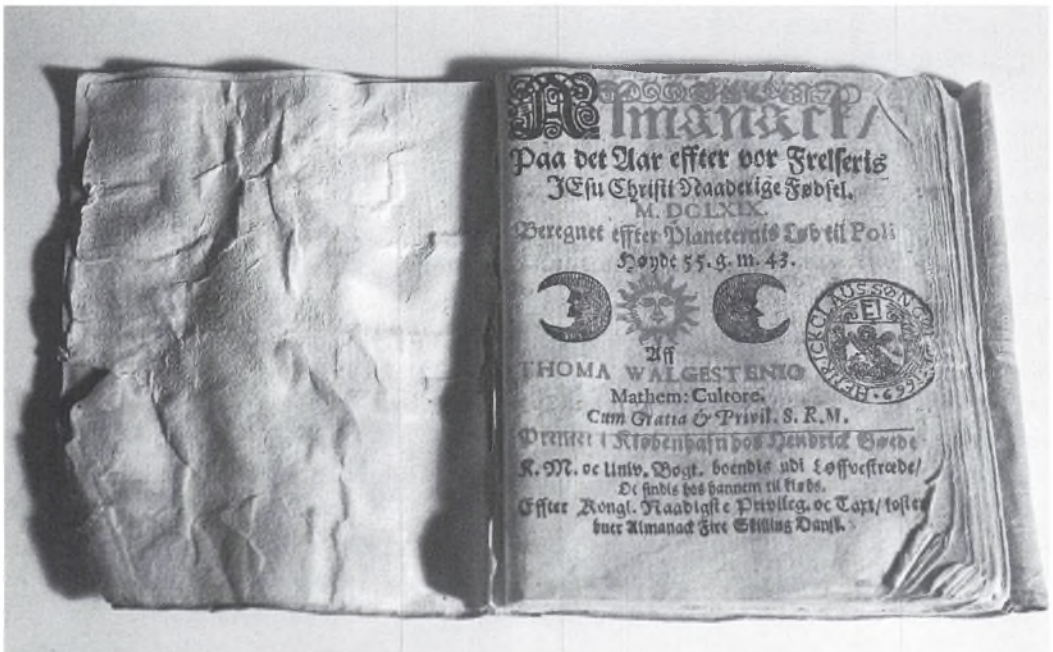 Almanack/
Paa det Aar effter vor Frelseris
JEsu Christi Naaderige Fødsel.
M. DCLXIX.
Beregnet effter Planeternis Løb til Poli
Høyde 55. g. m. 43.
Aff
THOMA WALGESTENIO
Mathem: Cultore.
Cum Gratia & Privil. S. R. M.
Prentet i Kiøbenhafn hos Hendrick Gøede
K. M. oc Univ. Bogt. boendis udi Løffvestræde/
Oc findis hos hannem til kiøbs.
Effter Kongl. Naadigste Privileg. oc Taxt/ koster
huer Almanack Fire Skilling Dansk.
HENRICK CLAUSSØN